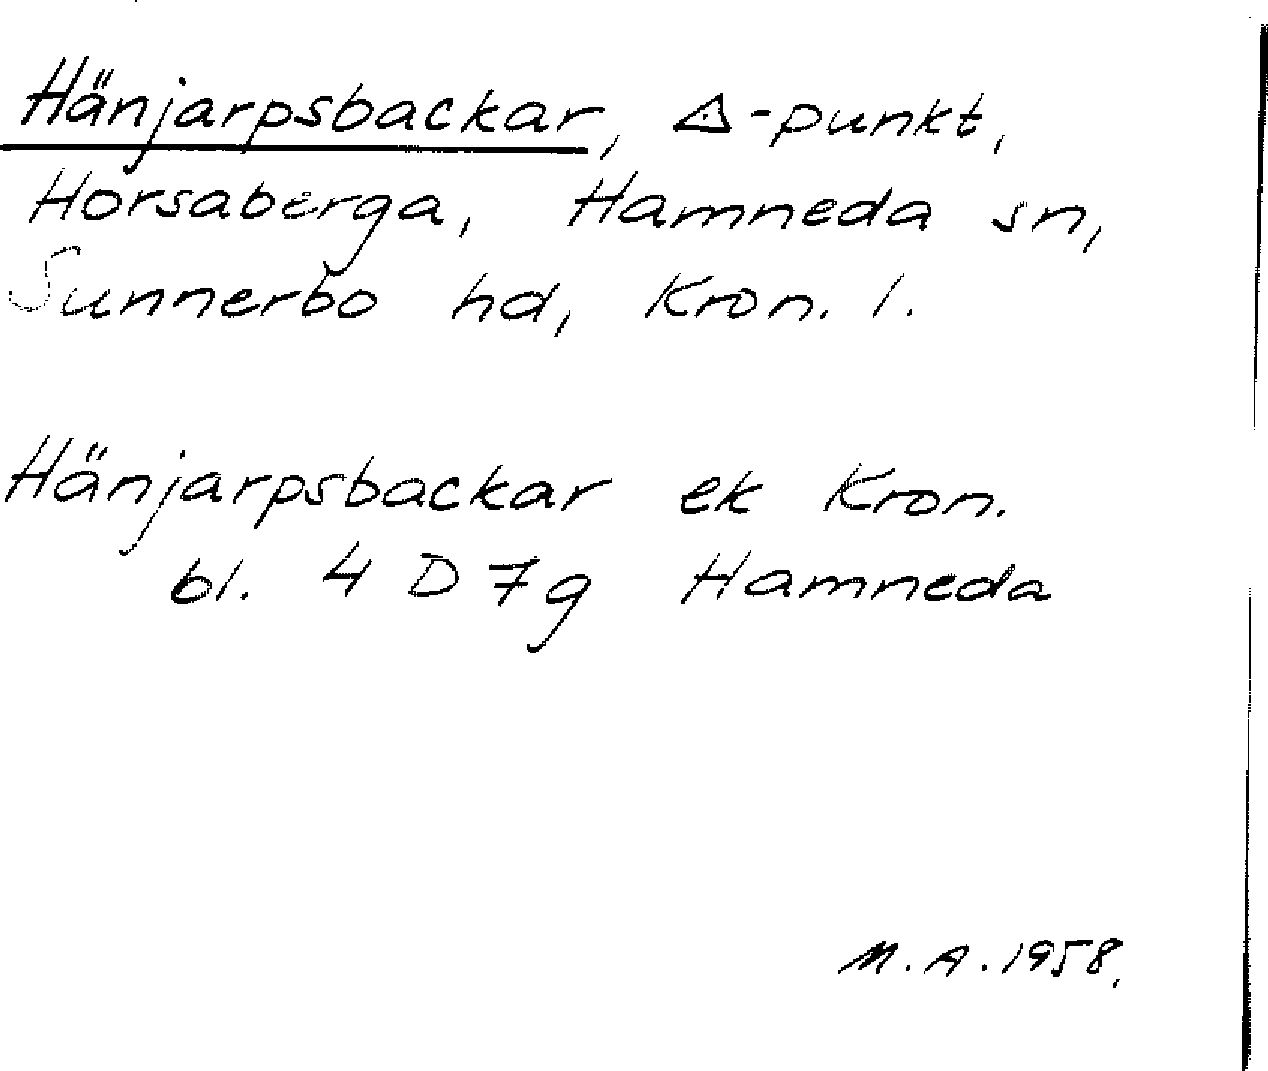 Hänjarpsbackar, △-punkt,
Horsaberga, Hamneda sn,
Sunnerbo hd, Kron. l.
Hänjarpsbackar ek Kron.
bl. 4 D 7g Hamneda
M.A. 1958.